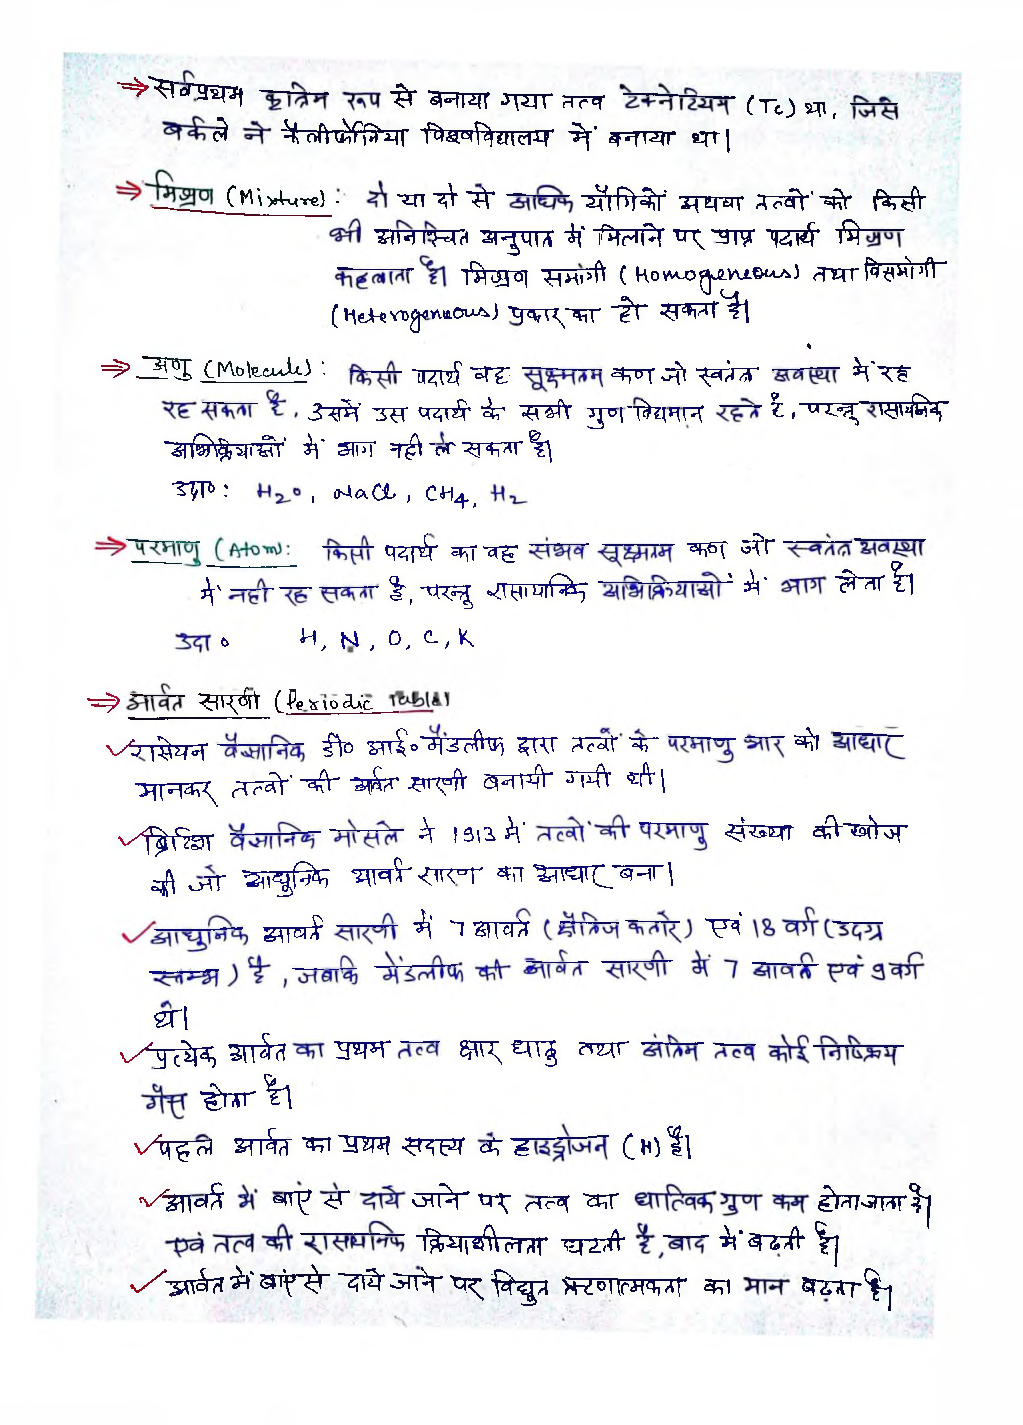 ⇒ सर्वप्रथम कृत्रिम रूप से बनाया गया तत्व टेक्नेटियम (Tc) था, जिसे
बर्कले ने कैलीफोर्निया विश्वविद्यालय में बनाया था।
⇒ मिश्रण (Mixture): दो या दो से अधिक यौगिकों अथवा तत्वों को किसी
भी अनिश्चित अनुपात में मिलाने पर प्राप्त पदार्थ मिश्रण
कहलाता है। मिश्रण समांगी (Homogeneous) तथा विसमांगी
(Heterogeneous) प्रकार का हो सकता है।
⇒ अणु (Molecule): किसी पदार्थ वह सूक्ष्मतम कण जो स्वतंत्र अवस्था में रह
रह सकता है, उसमें उस पदार्थ के सभी गुण विद्यमान रहते है, परन्तु रासायनिक
अभिक्रियाओं में भाग नही ले सकता है।
उदा०: H₂O, NaCl, CH₄, H₂
⇒ परमाणु (Atom): किसी पदार्थ का वह संभव सूक्ष्मतम कण जो स्वतंत्र अवस्था
में नही रह सकता है, परन्तु रासायनिक अभिक्रियाओं में भाग लेता है।
उदा० H, N, O, C, K
⇒ आर्वत सारणी (Periodic Table)
✓ रासेयन वैज्ञानिक डी० आई० मैंडलीफ द्वारा तत्वों के परमाणु भार को आधार
मानकर तत्वों की आर्वत सारणी बनायी गयी थी।
✓ ब्रिटिश वैज्ञानिक मोसले ने 1913 में तत्वों की परमाणु संख्या की खोज
की जो आधुनिक आवर्त सारण का आधार बना।
✓ आधुनिक आवर्त सारणी में 7 आवर्त (क्षैतिज कतारे) एवं 18 वर्ग (उदग्र
स्तम्भ) है, जबकि मेंडलीफ की आर्वत सारणी में 7 आवर्त एवं 9 वर्ग
थे।
✓ प्रत्येक आर्वत का प्रथम तत्व क्षार धातु तथा अंतिम तत्व कोई निष्क्रिय
गैस होता है।
✓ पहले आर्वत का प्रथम सदस्य के हाइड्रोजन (H) है।
✓ आवर्त में बाएं से दायें जाने पर तत्व का धात्विक गुण कम होता जाता है।
एवं तत्व की रासायनिक क्रियाशीलता घटती है, बाद में बढ़ती है।
✓ आर्वत में बाएं से दायें जाने पर विद्युत ऋणात्मकता का मान बढ़ता है।